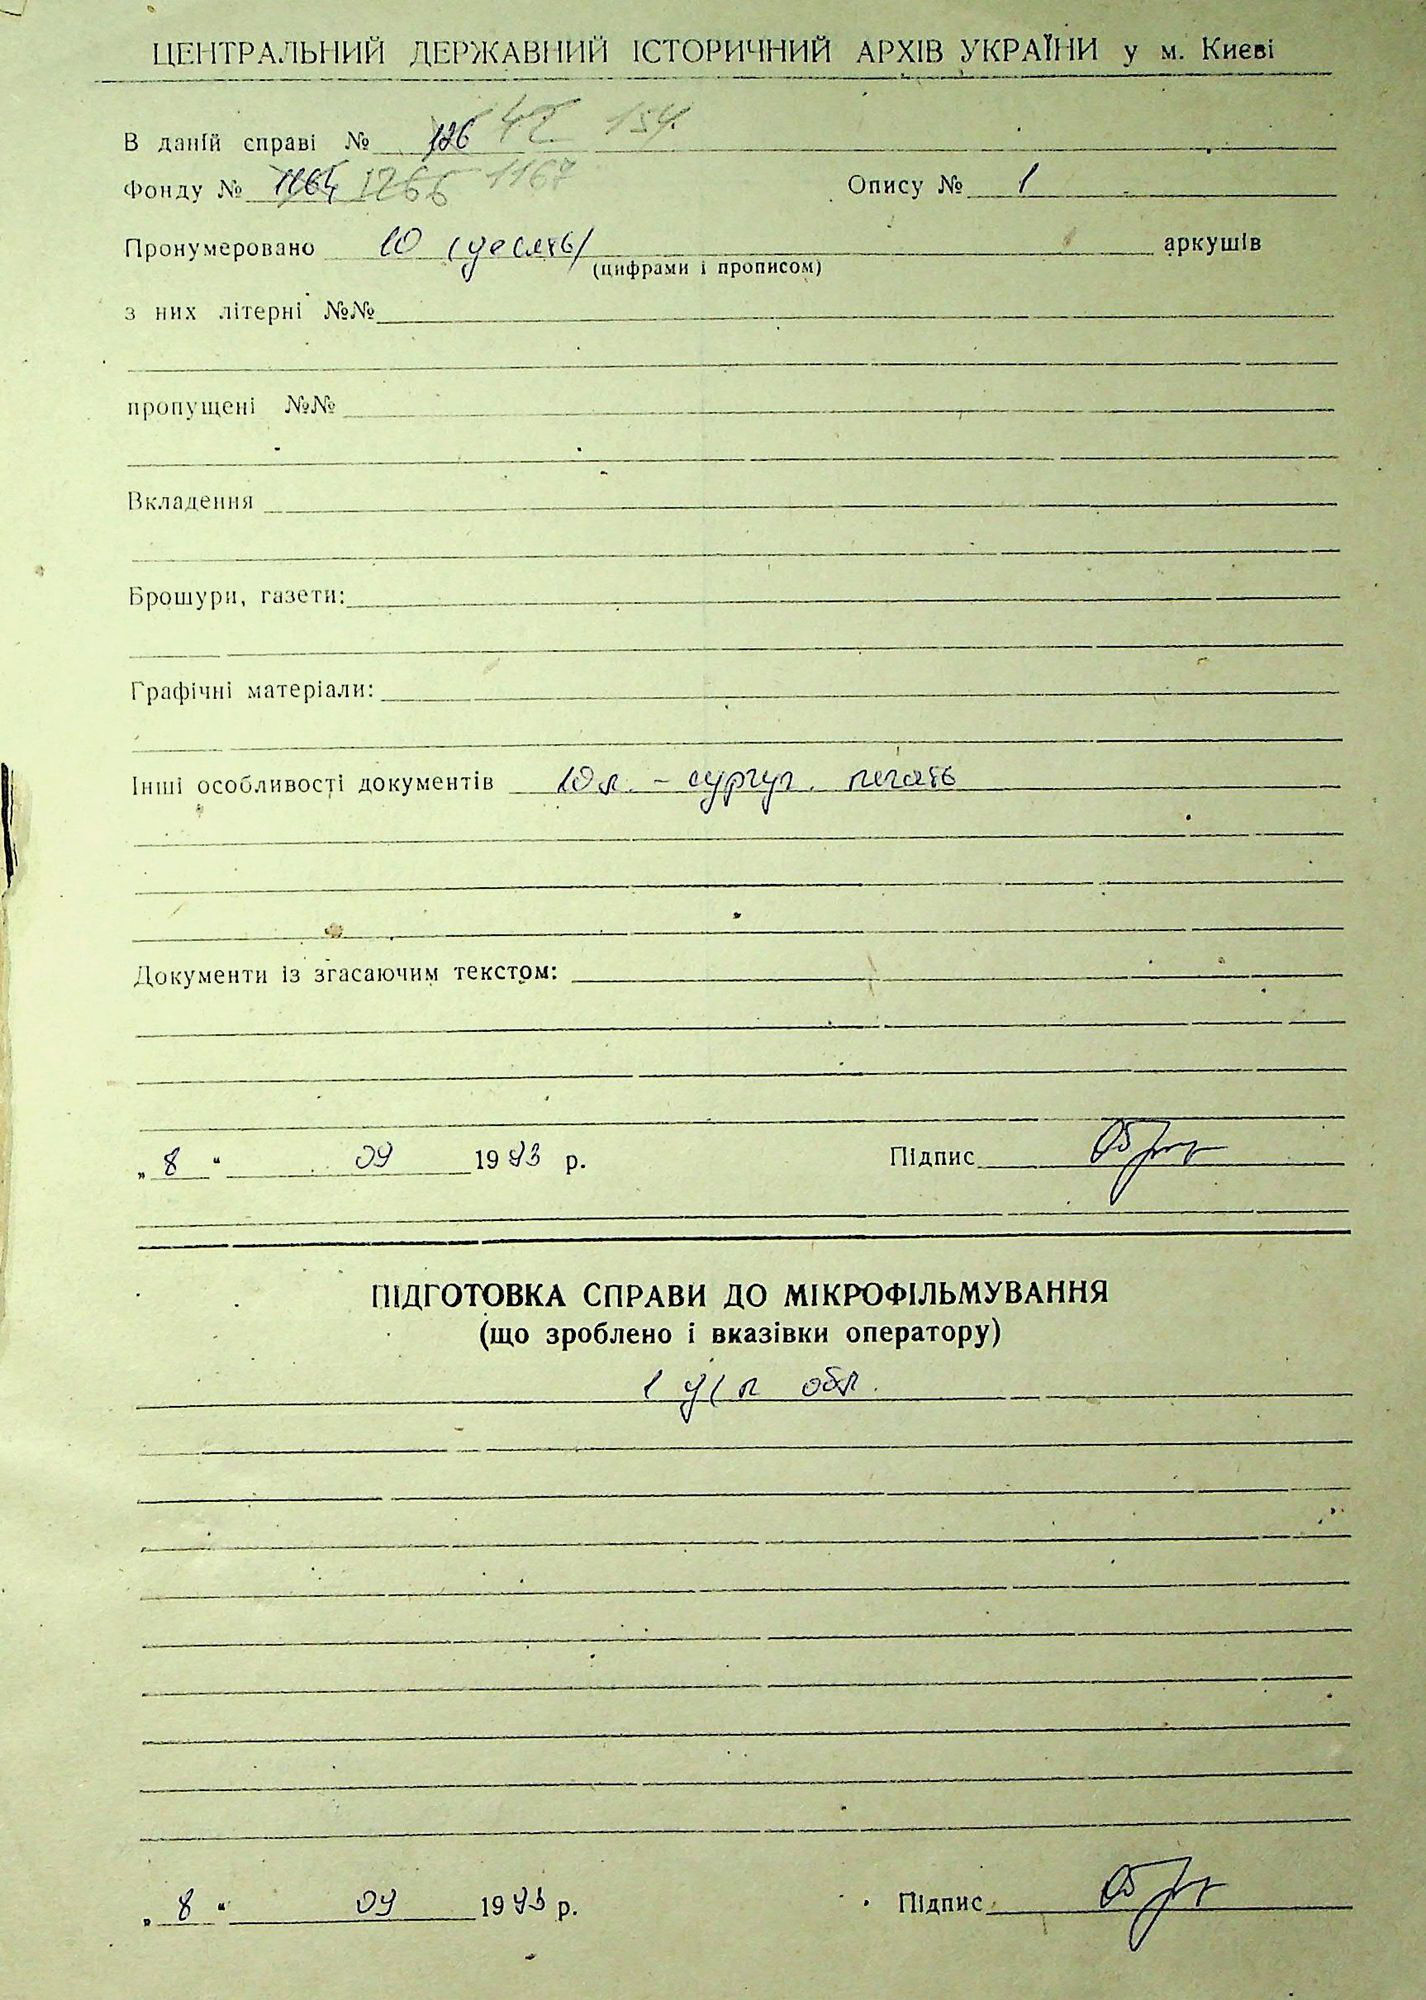 ЦЕНТРАЛЬНИЙ ДЕРЖАВНИЙ ІСТОРИЧНИЙ АРХІВ УКРАЇНИ у м. Києві
В даній справі № 126 42 154.
Фонду № 1164 1266 1167 Опису № 1
Пронумеровано 10 (десять) аркушів
(цифрами і прописом)
з них літерні №№
пропущені №№
Вкладення
Брошури, газети:
Графічні матеріали:
Інші особливості документів 10 л. – сургуч. печать
Документи із згасаючим текстом:
„ 8 “ 09 1993 р. Підпис
ПІДГОТОВКА СПРАВИ ДО МІКРОФІЛЬМУВАННЯ
(що зроблено і вказівки оператору)
1 обл.
„ 8 “ 09 1993 р. Підпис